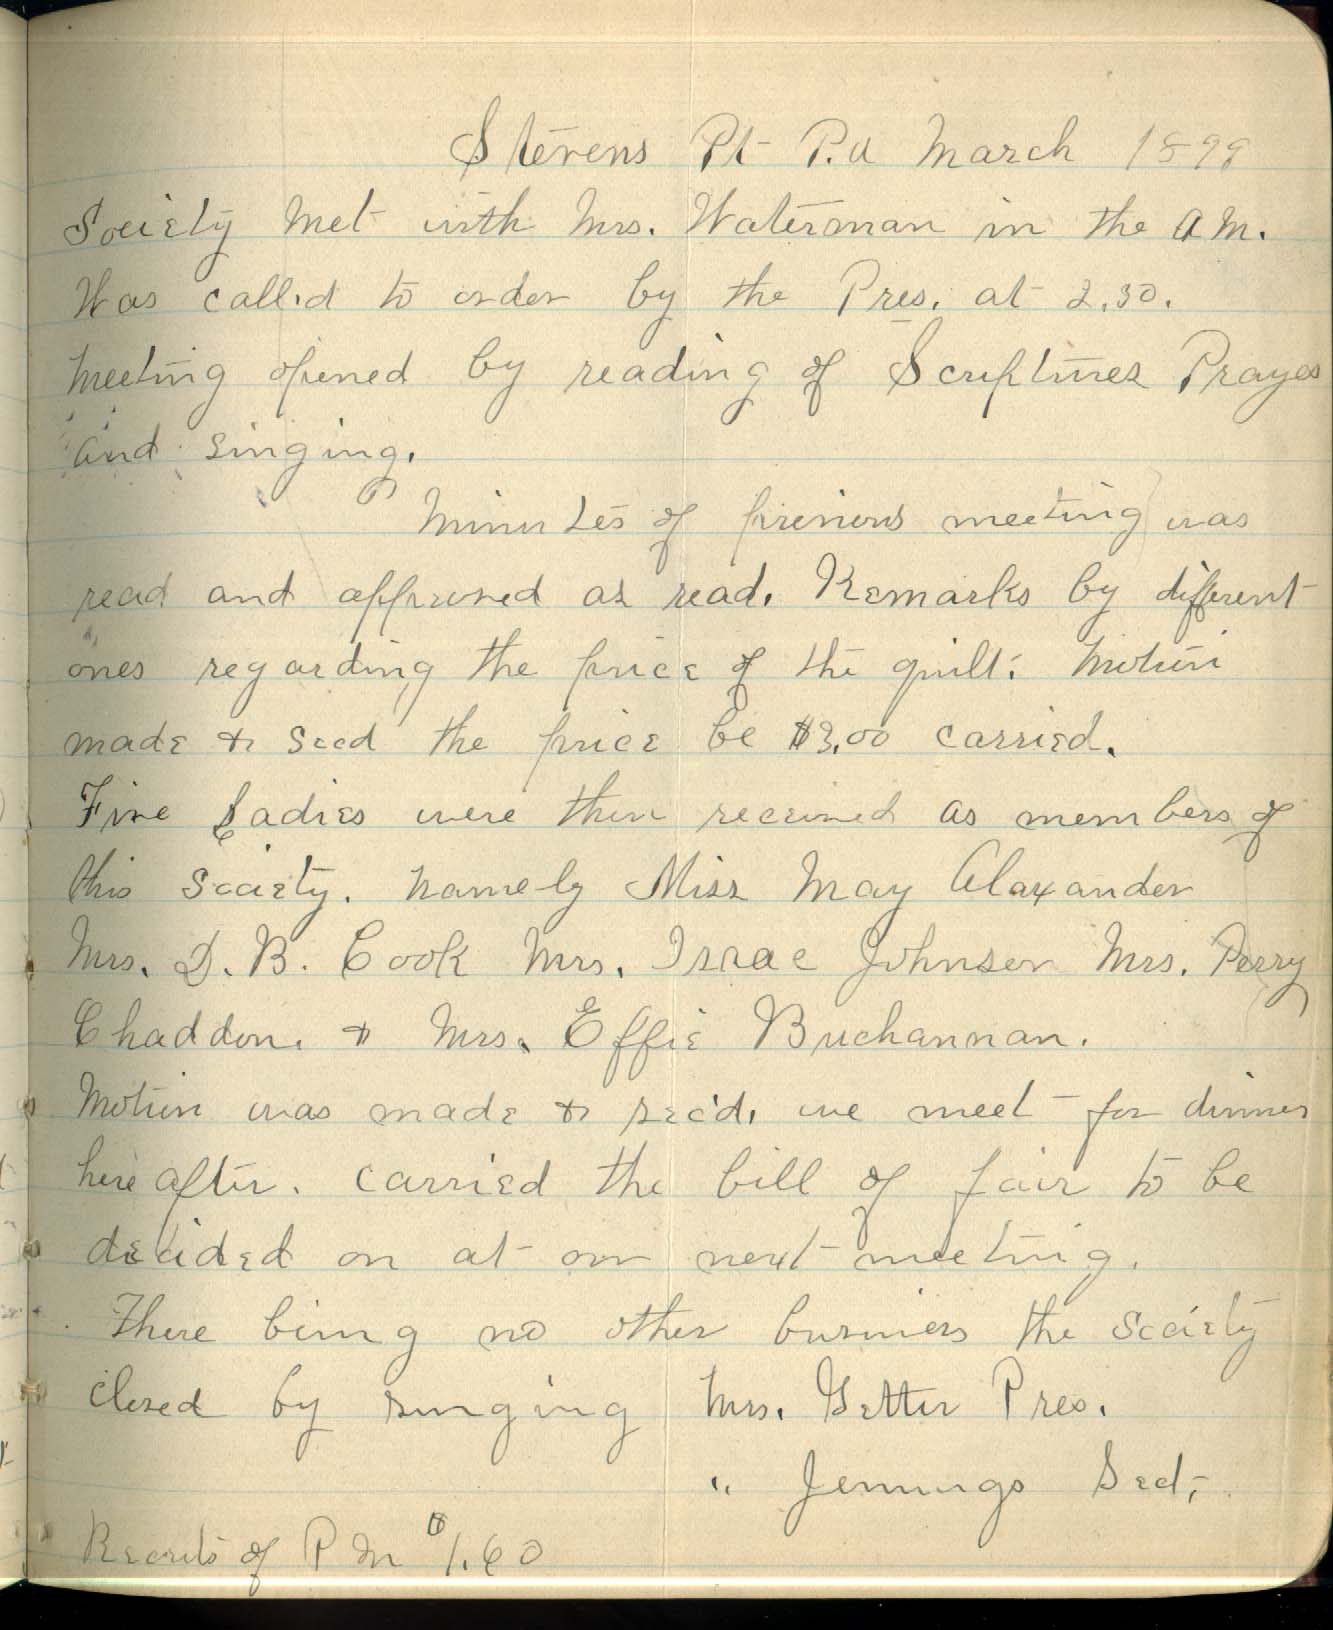 Stevens Pt P.a March 1899
Society Met with Mrs. Waterman in the A M.
Was called to order by the Pres. at 2.30.
Meeting opened by reading of Scriptures Prayer
and singing.
Minutes of previous meeting was
read and approved as read. Remarks by different
ones regarding the price of the quilt. Motion
made & Secd the price be $3.00 carried.
Five Ladies were then received as members of
this Society. namely Miss May Alaxander
Mrs. D. B. Cook Mrs. Isaac Johnson Mrs. Perry
Chaddon. & Mrs. Effie Buchannan.
Motion was made & sec'd. we meet for dinner
here after. carried the bill of fair to be
decided on at our next meeting.
There being no other business the Society
closed by singing Mrs. Getter Pres.
" Jennings Sect,
Receits of P M $1.60